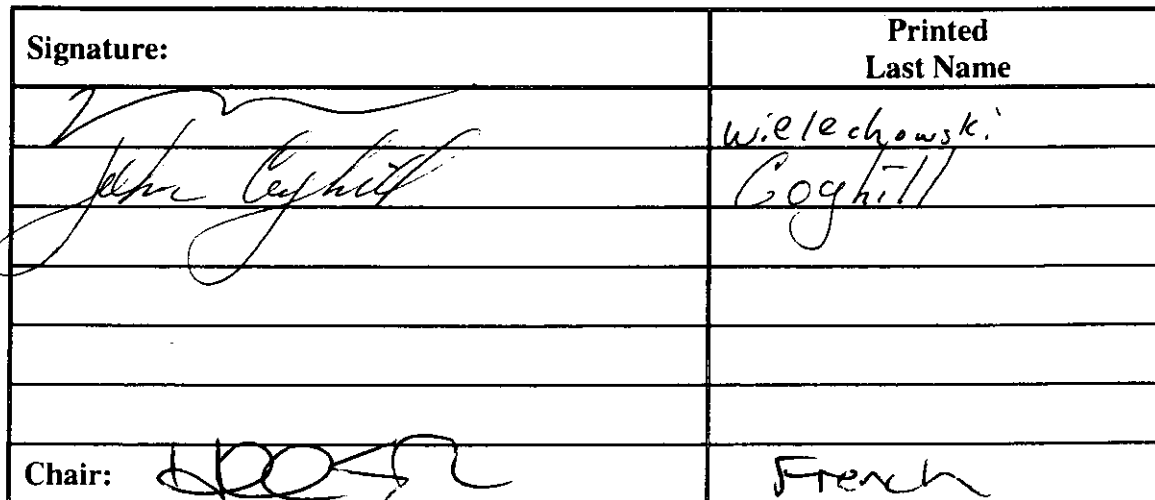 Signature: Printed
Last Name
Wielechowski
John Coghill Coghill
Chair: French